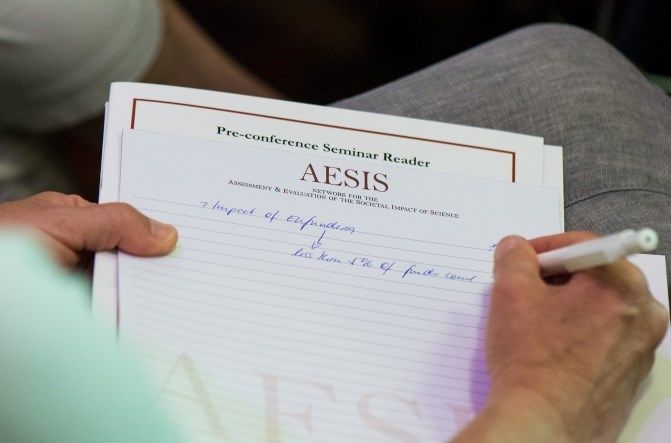 Pre-conference Seminar Reader
AESIS
NETWORK FOR THE
ASSESSMENT & EVALUATION OF THE SOCIETAL IMPACT OF SCIENCE
? Impact of EU funding
less than % of funds come
AESIS